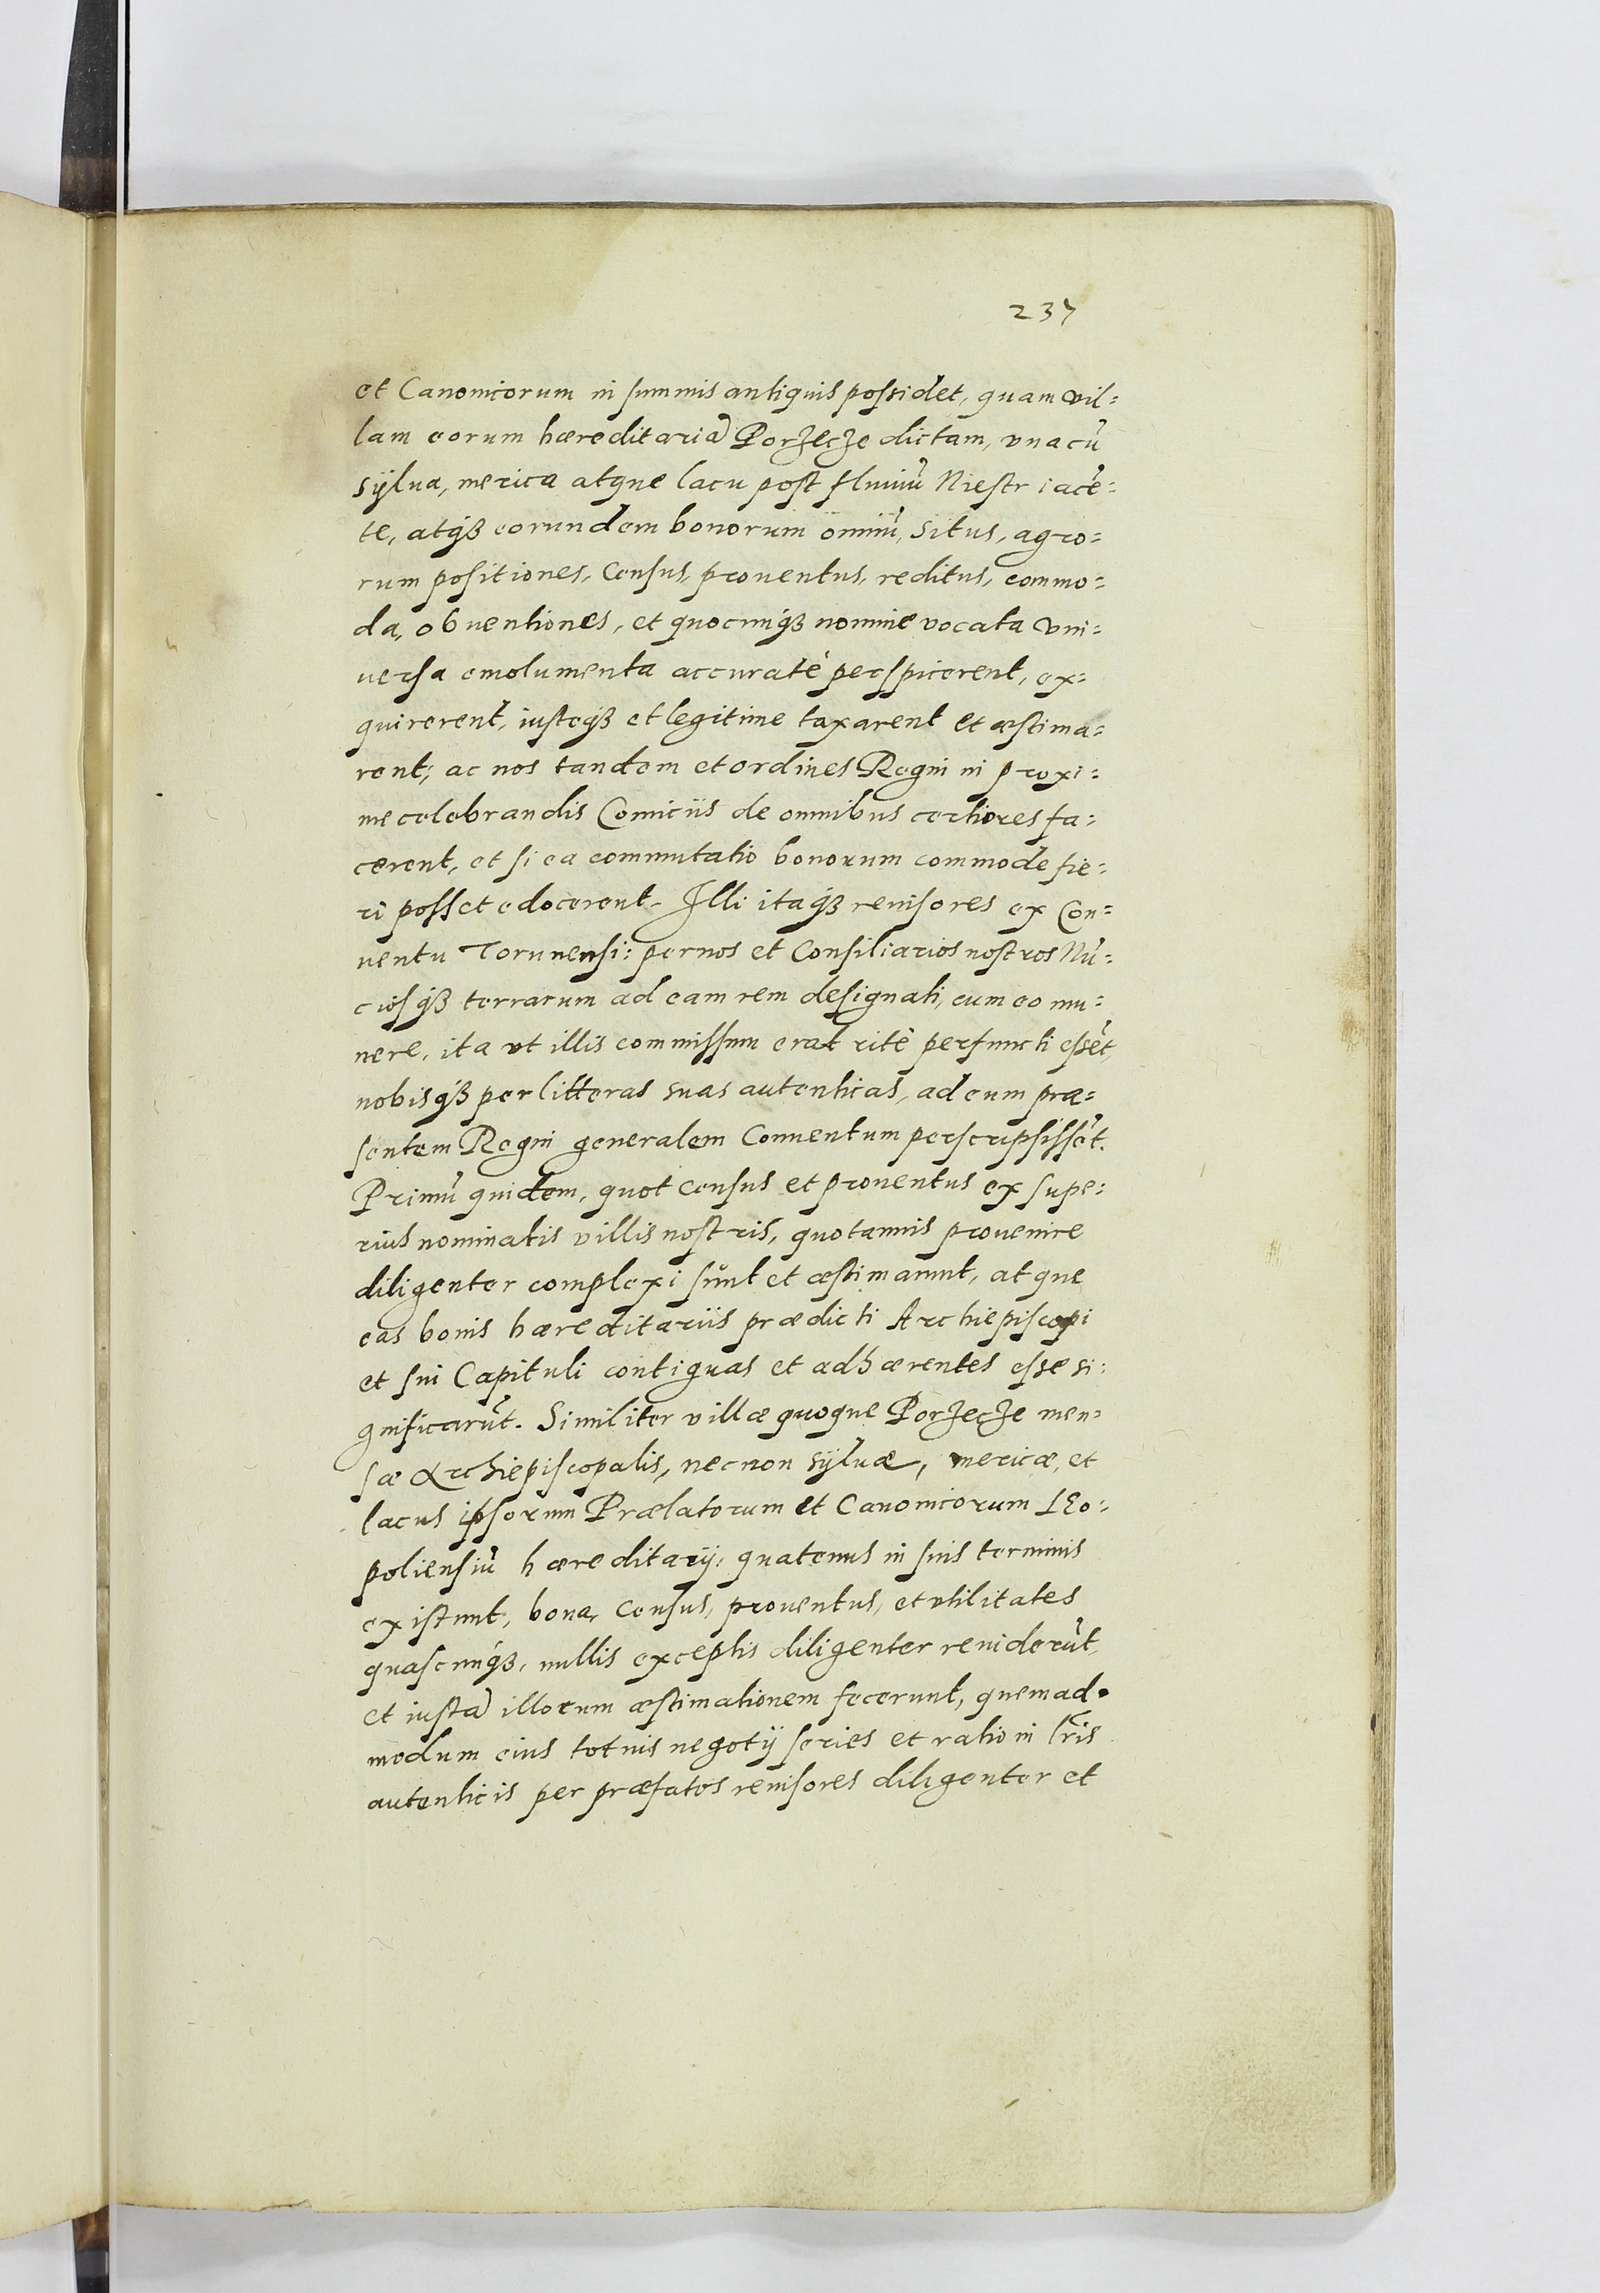 237
et Canonicorum in summis antiquis possidet, quam vil=
lam eorum hæreditariã Porzecze dictam, vna cũ
sÿlua, merica atque lacu post fluuiũ Niestr iacẽ=
te, atq́ꝫ eorundem bonorum omniũ, situs, agro=
rum positiones, Census, prouentus, reditus, commo=
da, obuentiones, et quocunq́ꝫ nomine vocata vni=
uersa emolumenta accuratè perspicerent, ex=
quirerent, iusteq́ꝫ et legitime taxarent et æstima=
rent; ac nos tandem et ordines Regni in proxi=
me celebrandis Comiciis de omnibus certiores fa=
cerent, et si ea commutatio bonorum commode fie=
ri posset edocerent. Illi itaq́ꝫ reuisores ex Con=
uentu Torunensi: per nos et Consiliarios nostros Nũ=
ciosq́ꝫ terrarum ad eam rem designati, cum eo mu=
nere, ita vt illis commissum erat ritè perfuncti essẽt,
nobisq́ꝫ per litteras suas autenticas, ad eum præ=
sentem Regni generalem Conuentum perscripsissẽt.
Primũ quidem, quot census et prouentus ex supe=
rius nominatis villis nostris, quotannis prouenire
diligenter complexi sunt et æstimarunt, atque
eas bonis hæreditariis prædicti Archiepiscopi
et sui Capituli contiguas et adhærentes esse si=
gnificarũt. Similiter villæ quoque Porzecze men=
sæ Archiepiscopalis, necnon sÿluæ, mericæ, et
lacus ipsorum Prælatorum et Canonicorum LEo=
poliensiũ hæreditarÿ, quatenus in suis terminis
existunt, bona, Census, prouentus, et vtilitates
quascunq́ꝫ, nullis exceptis diligenter reuiderũt,
et iustã illorum æstimationem fecerunt, quemad=
modum eius totius negotÿ series et ratio in lr̃is
autenticis per præfatos reuisores diligenter et